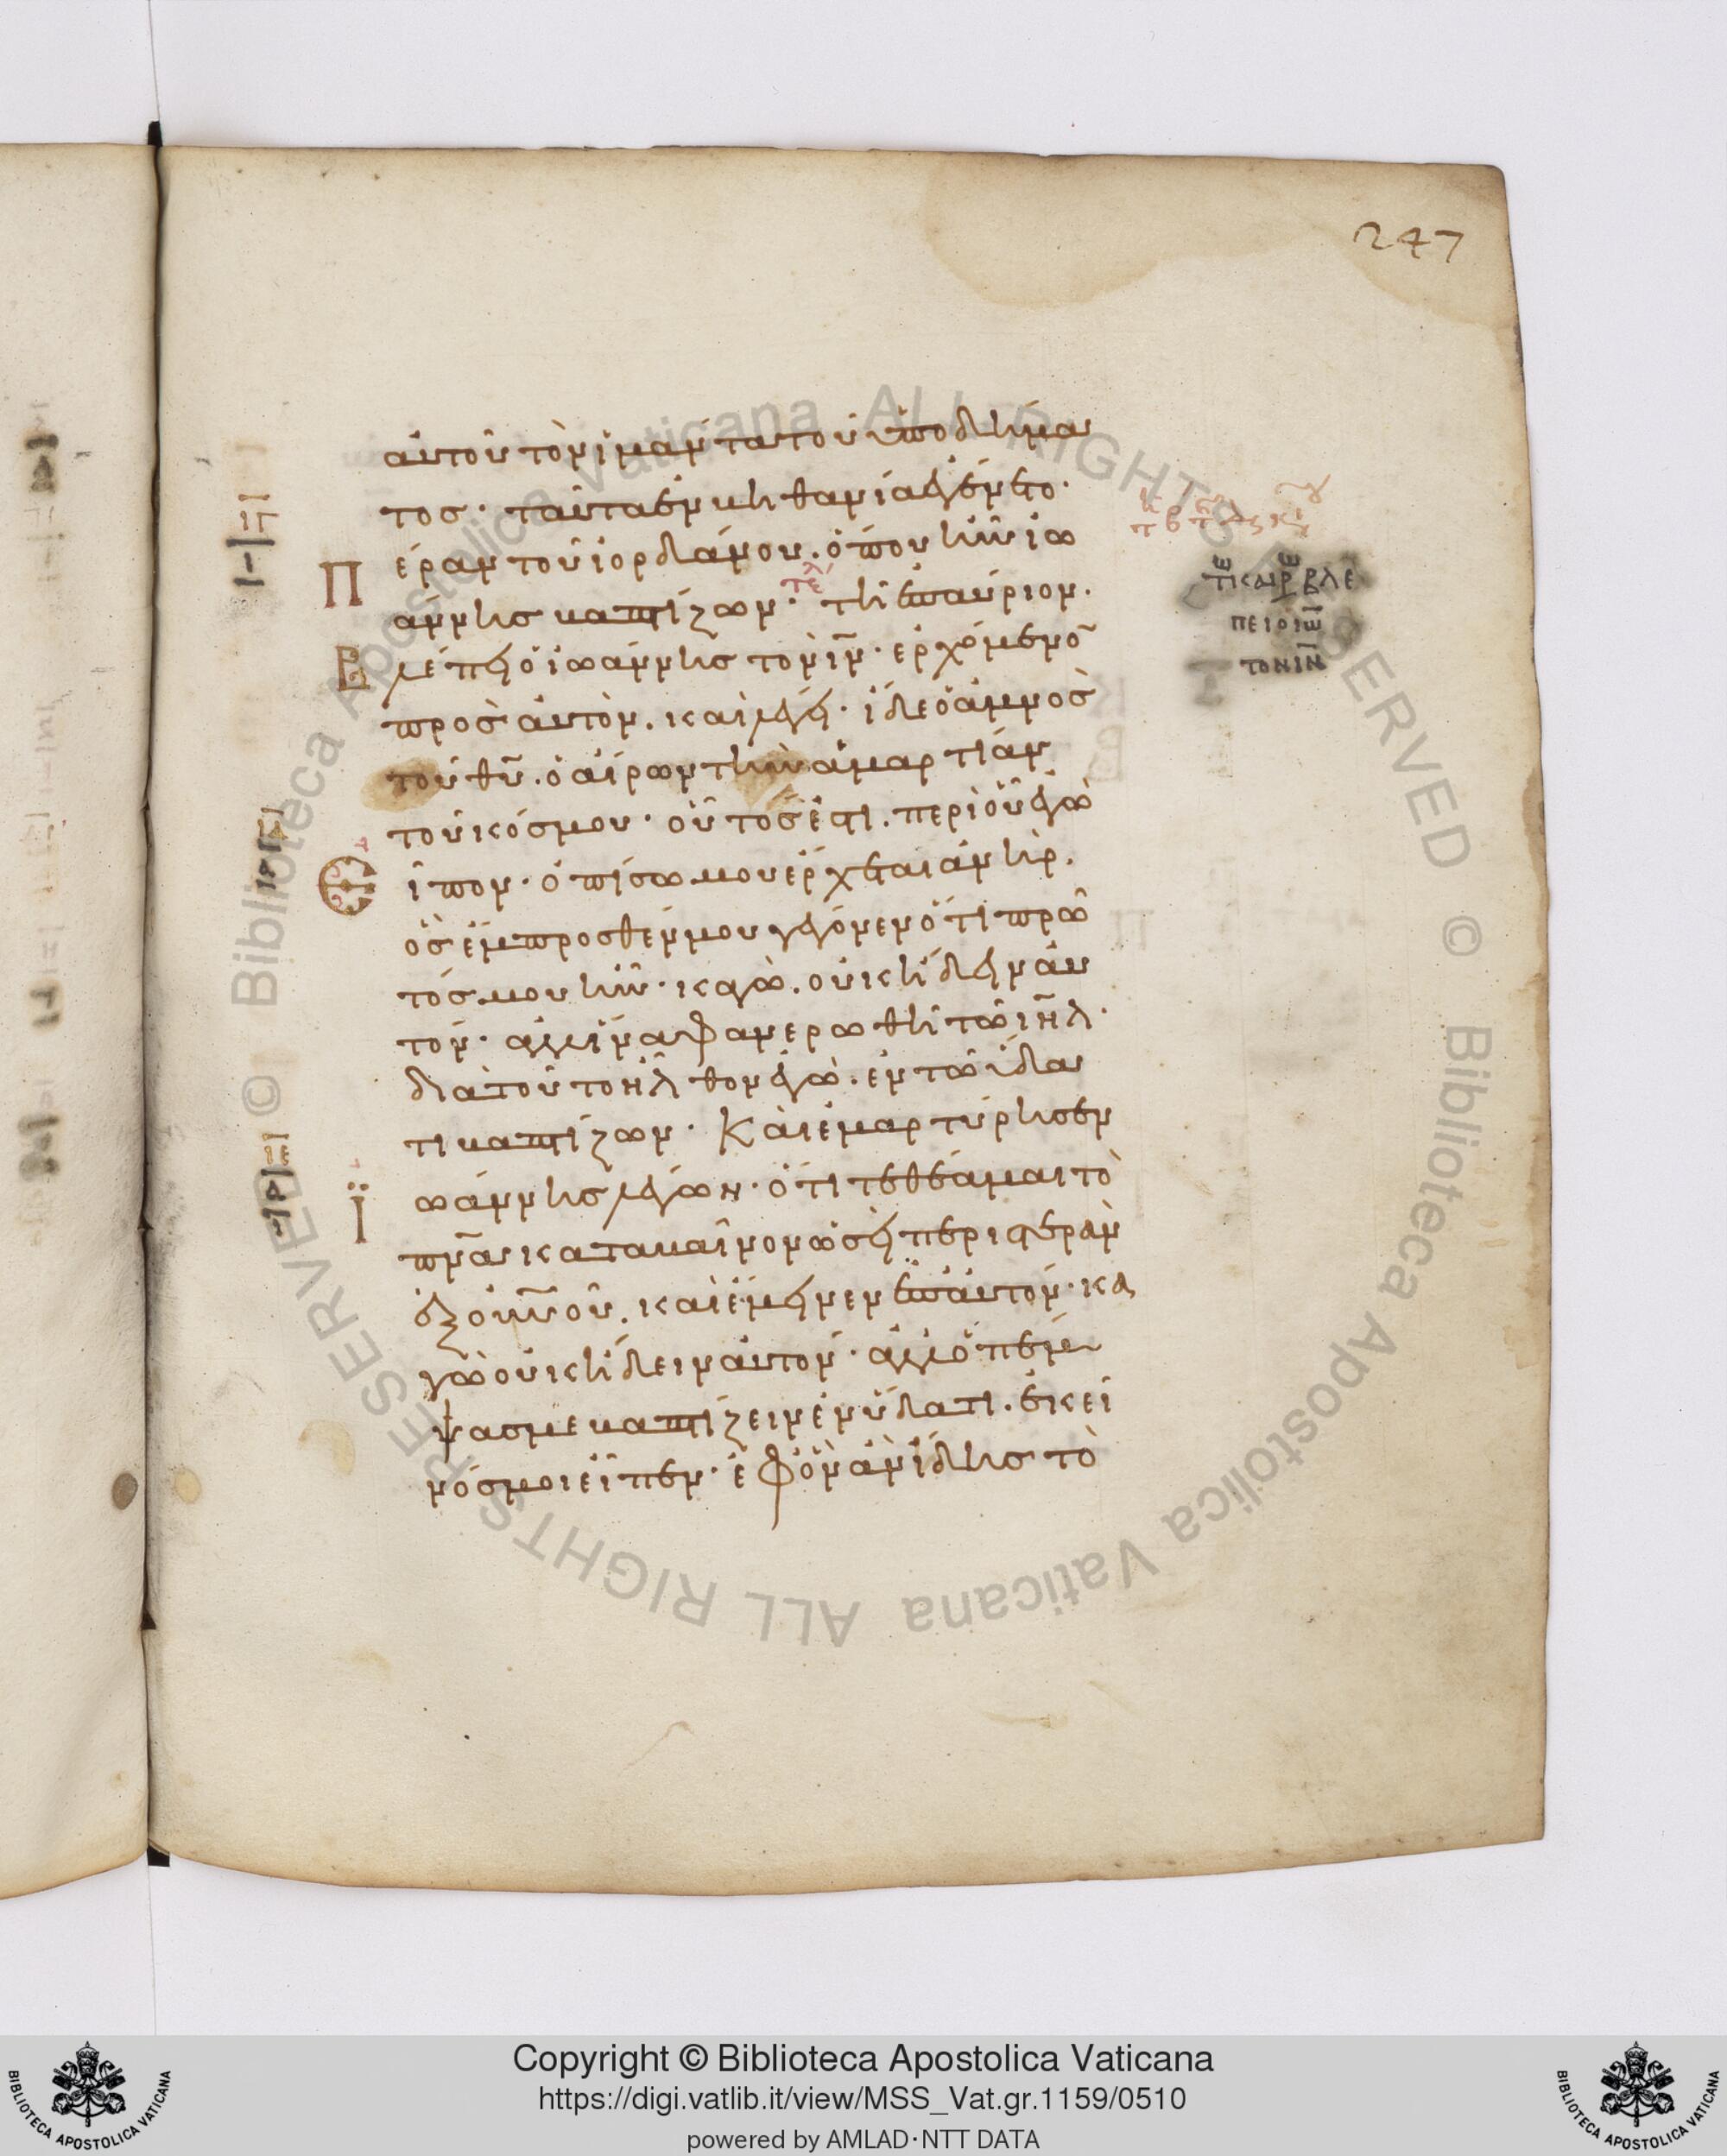 247
αὐτοῦ τὸν ἱμάντα τοῦ ὑποδήμα
τος· ταῦτα ἐν βηθανίᾳ ἐγένετο·
Πέραν τοῦ ἰορδάνου. ὅπου ἦν ἰω
άννης βαπτίζων· τῇ ἐπαύριον.
Βλέπει ὁ ἰωάννης τὸν ιν̅· ἐρχόμενο̅
πρὸς αὐτὸν. καὶ λέγει· ἴδε ὁ ἀμνὸς
τοῦ θυ̅. ὁ αἴρων τὴν ἁμαρτίαν
τοῦ κόσμου· οὗτός ἐστι. περὶ οὗ ἐγὼ
Εἶπον· ὀπίσω μου ἔρχεται ἀνὴρ.
ὃς ἔμπροσθέν μου γέγονεν ὅτι πρῶ
τός μου ἦν· κἀγὼ. οὐκ ᾔδειν αὐ
τόν· ἀλλ' ἵνα φανερωθῇ τῷ ιη̅λ·
διὰ τοῦτο ἦλθον ἐγὼ. ἐν τῷ ὕδα
τι βαπτίζων· Καὶ ἐμαρτύρησεν
Ϊωάννης λέγων· ὅτι τεθέαμαι τὸ
πν̅α καταβαῖνον ὡσεὶ περιστερὰν
ἐξ οὐνοῦ. καὶ ἔμεινεν ἐπ' αὐτόν· κἀ
γὼ οὐκ ᾔδειν αὐτόν· ἀλλ' ὁ πέμ
ψας με βαπτίζειν ἐν ὕδατι. ἐκεῖ
νός μοι εἶπεν· ἐφ' ὃν ἂν ἴδῃς τὸ
τε̅λ
τ̅ καιρ̅ βλε
πει ο ιω̅
τον ιν̅
Copyright © Biblioteca Apostolica Vaticana
https://digi.vatlib.it/view/MSS_Vat.gr.1159/0510
powered by AMLAD·NTT DATA
BIBLIOTECA APOSTOLICA VATICANA
BIBLIOTECA APOSTOLICA VATICANA
© Biblioteca Apostolica Vaticana ALL RIGHTS RESERVED
© Biblioteca Apostolica Vaticana ALL RIGHTS RESERVED